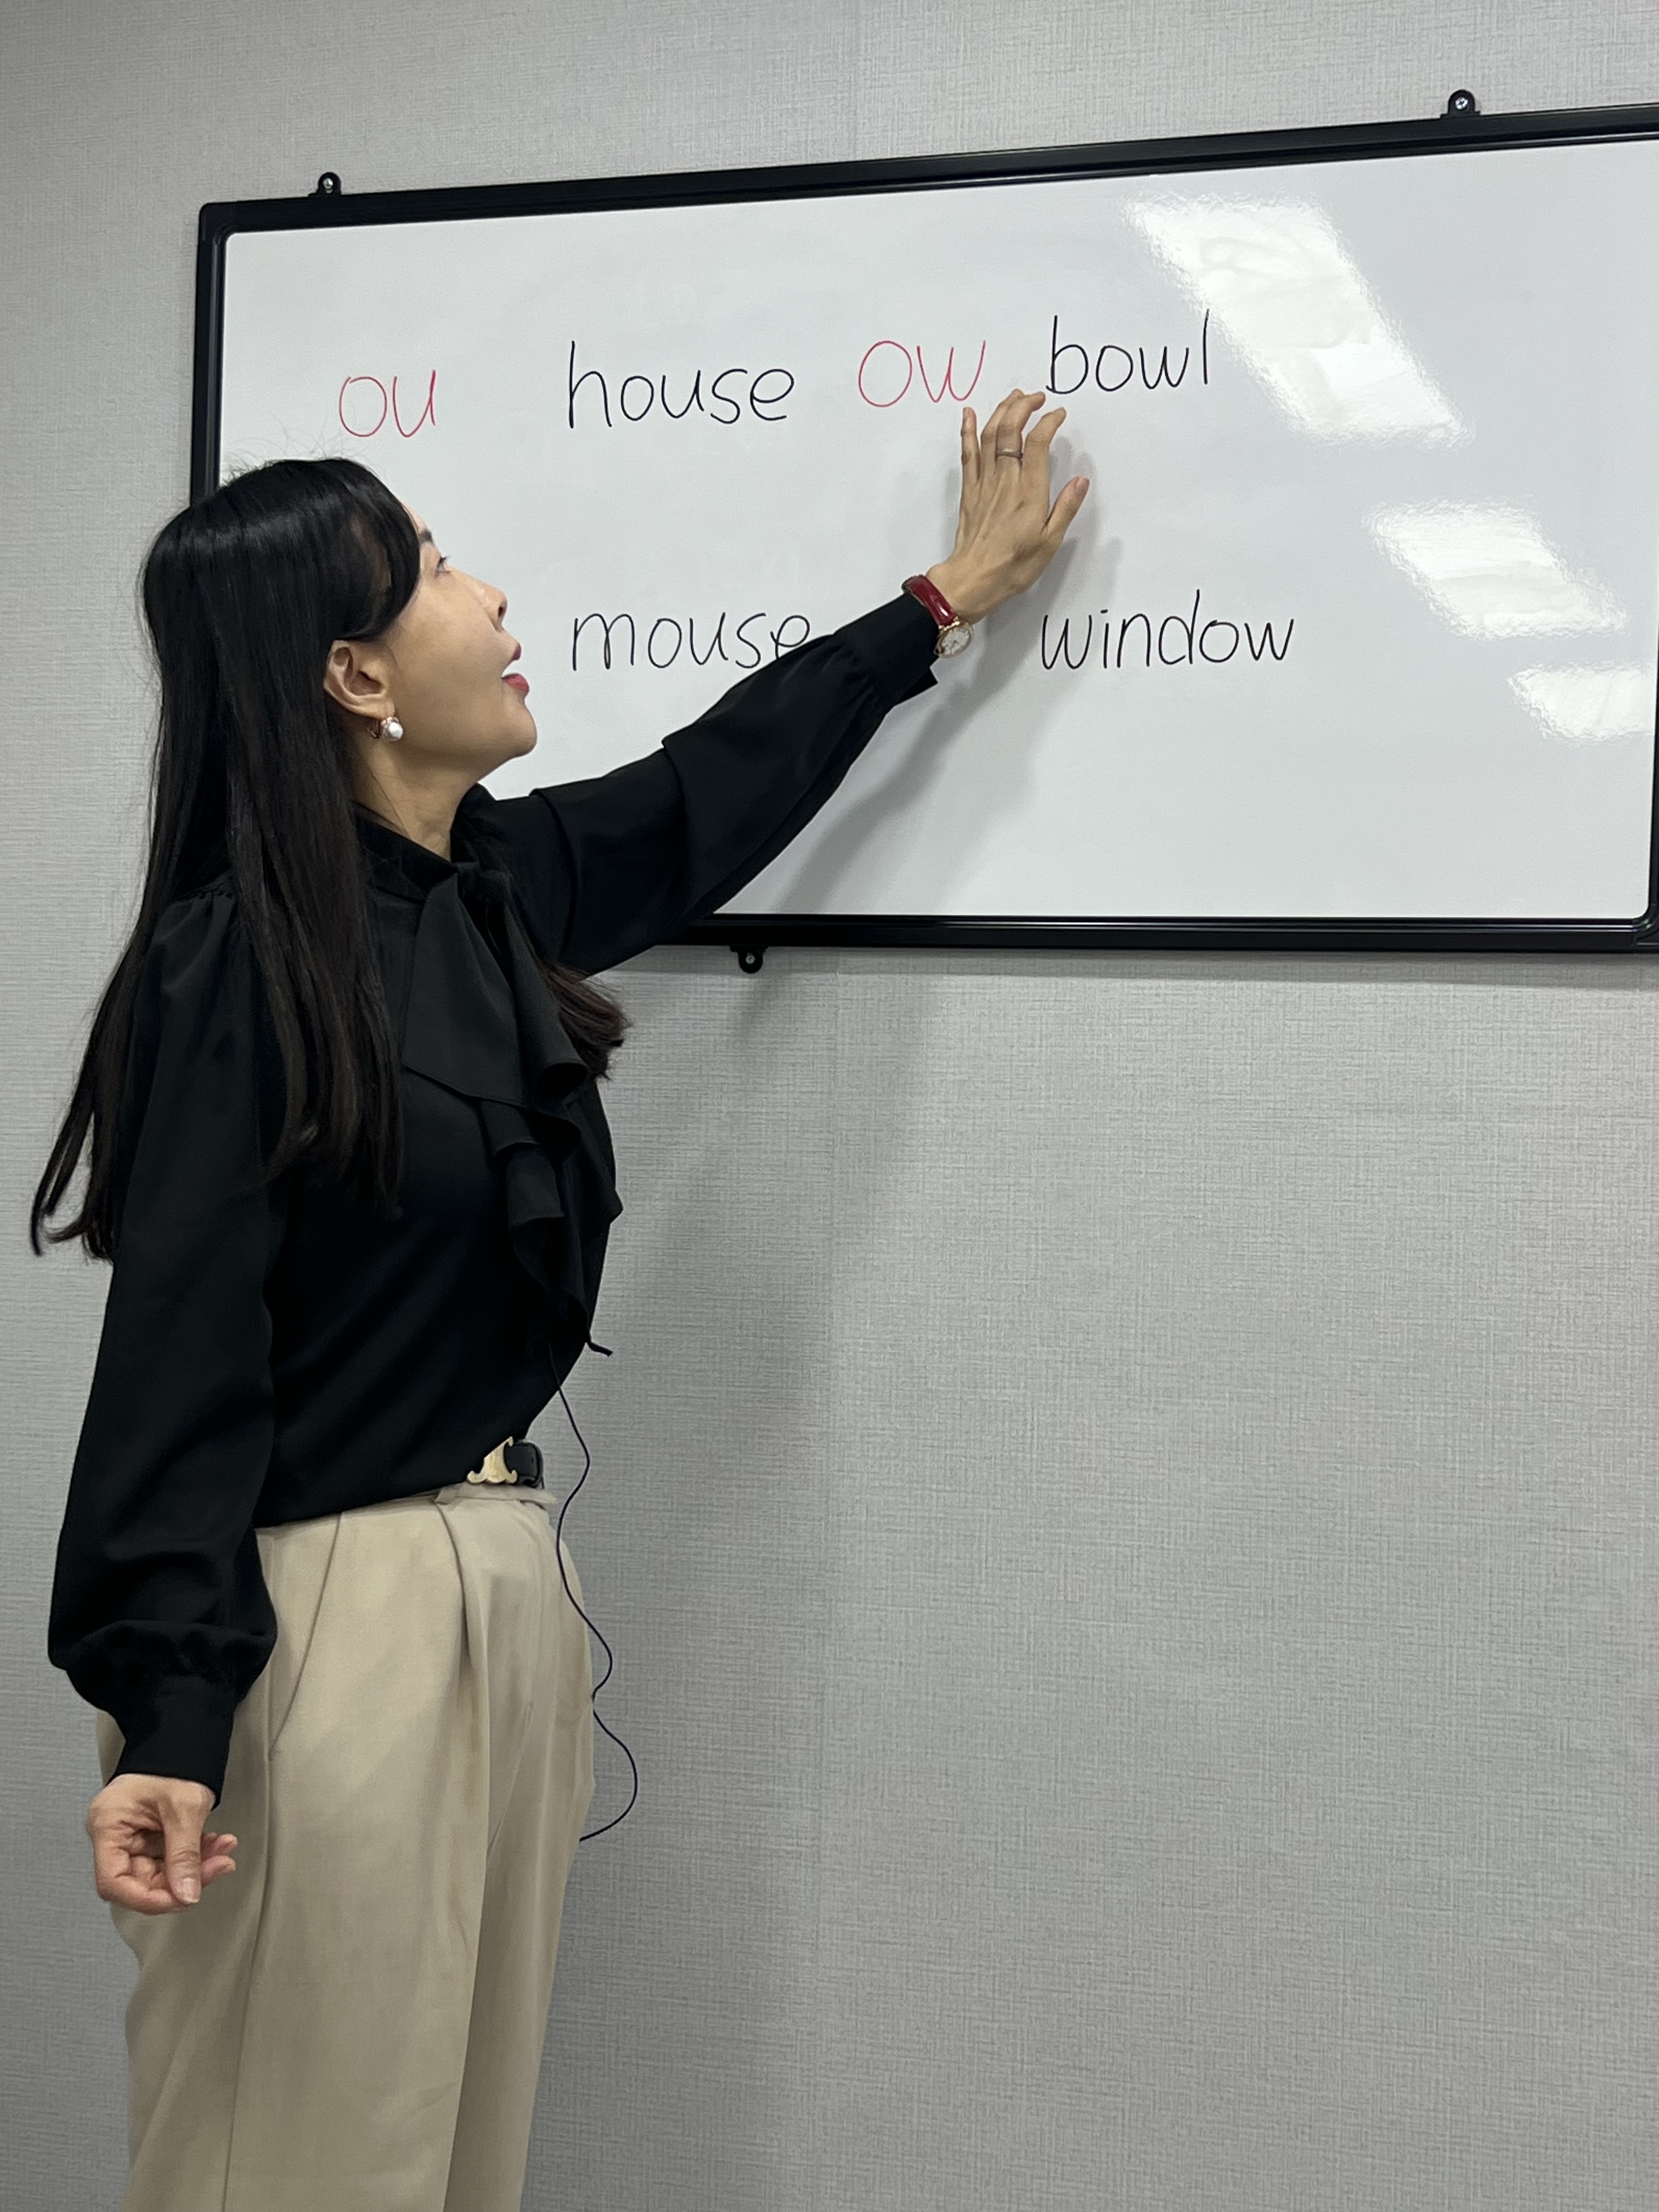 ou house ow bowl
mouse window